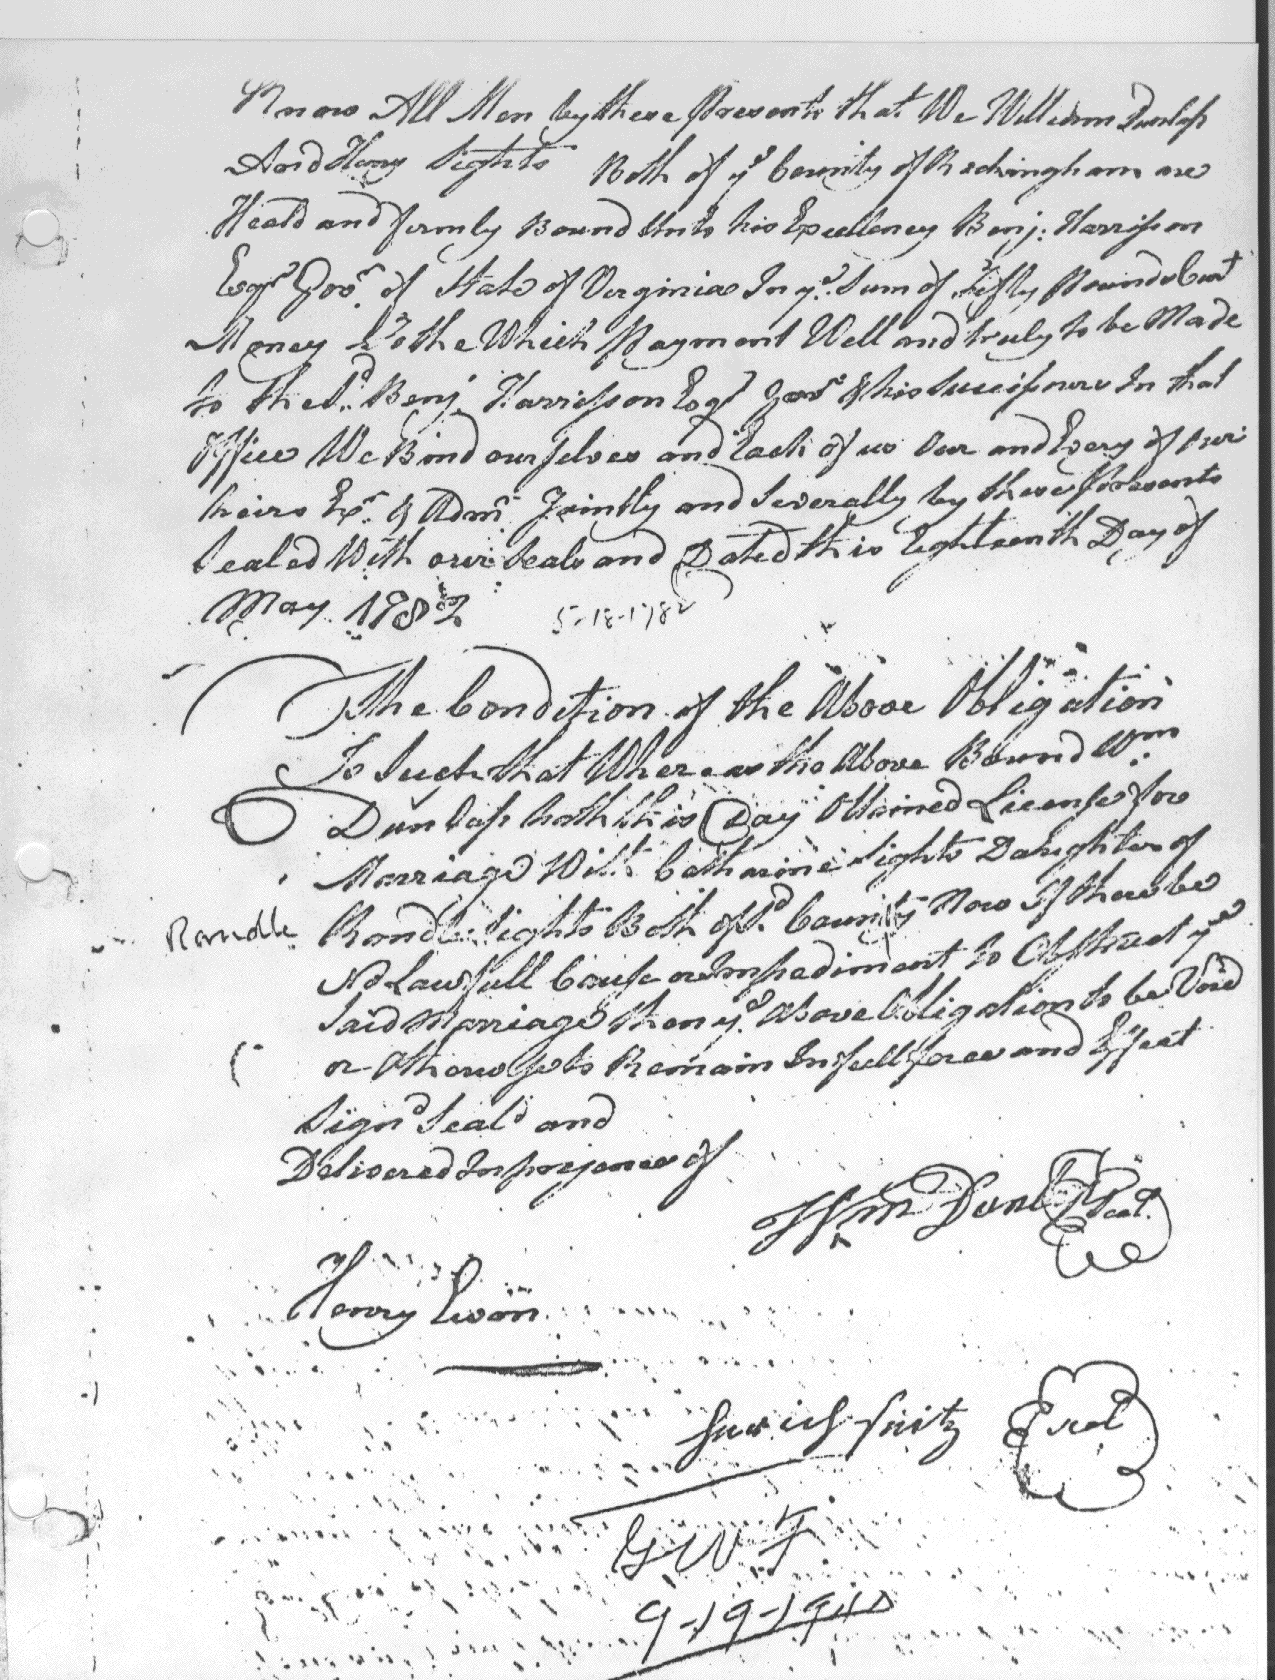 Know All Men by these Presents that We William Dunlap
And Henry Sights Both of yᵉ County of Rockingham are
Heald and firmly Bound Unto his Excellency Benj: Harrisson
Esqʳ Govʳ of State of Virginia In yᵉ Sum of Fifty Pounds Curᵗ
Money To the Which Payment Well and truly to be Made
to the sᵈ Benj. Harrisson Esqʳ Govʳ & his Successours In that
Office We Bind ourselves and Each of us Our and Every of our
heirs Exʳ & Admʳ Jointly and Severally by these Presents
Sealed With our Seals and Dated this Eighteenth Day of
May 1782 5-18-1782
The Condition of the Above Obligation
Is Such that Whereas the Above Bound Wᵐ
Dunlap hath this Day Obtained License for
Marriage With Catharine Sights Daughter of
Randle Randle Sights Both of sᵈ County Now If there be
No Lawfull Cause or Impediment to Obstruct yᵉ
Said Marriage then yᵉ Above Obligation to be Void
or Otherwise to Remain In full force and Effect
Signᵈ Sealᵈ and
Delivered In presence of
Wm Dunlap Seal
Henry Ewin
Seal
GWF
9-19-1940